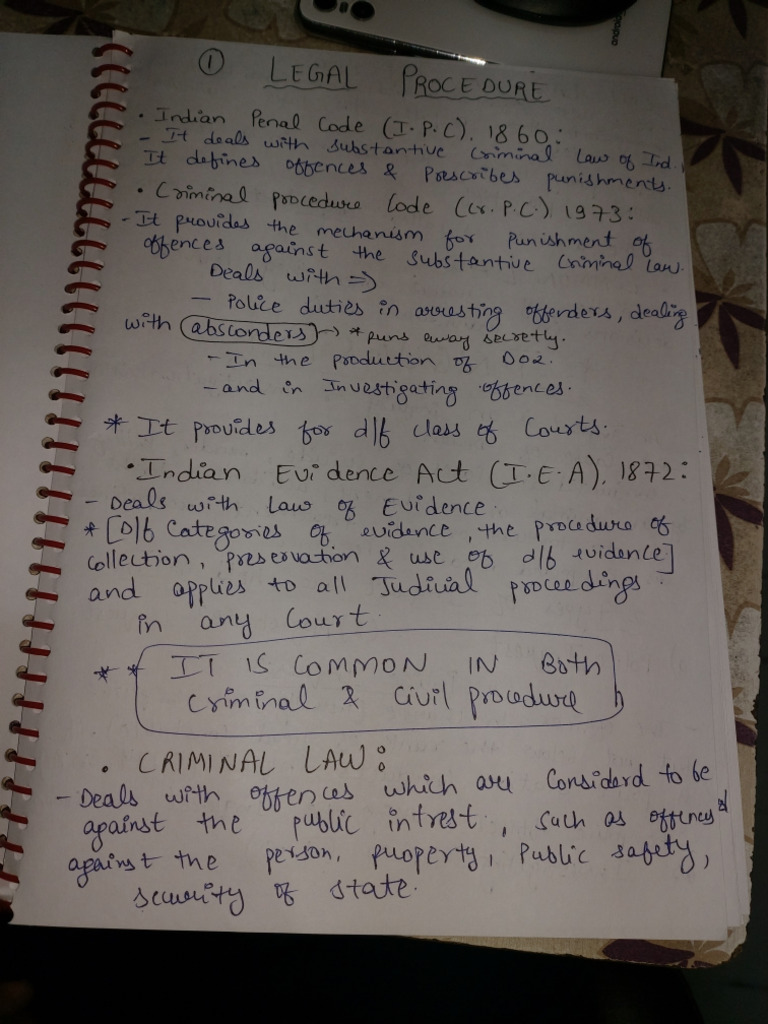 ① LEGAL PROCEDURE
• Indian Penal Code (I.P.C). 1860:
- It deals with substantive criminal law of Ind.
It defines offences & Prescribes punishments.
• Criminal procedure Code (Cr.P.C). 1973:
- It provides the mechanism for Punishment of
offences against the Substantive Criminal Law.
Deals with ⇒
- Police duties in arresting offenders, dealing
with absconders → * runs away secretly.
- In the production of
- and in Investigating offences.
* It provides for d/f class of Courts.
• Indian Evidence Act (I.E.A), 1872:
- Deals with Law of Evidence.
* [D/f Categories of evidence, the procedure of
collection, preservation & use of d/f evidence]
and applies to all Judicial proceedings
in any Court.
* * IT IS COMMON IN Both
Criminal & Civil procedure
• CRIMINAL LAW:
- Deals with offences which are Considerd to be
against the public intrest, such as offences
against the person, property, Public safety,
security of state.